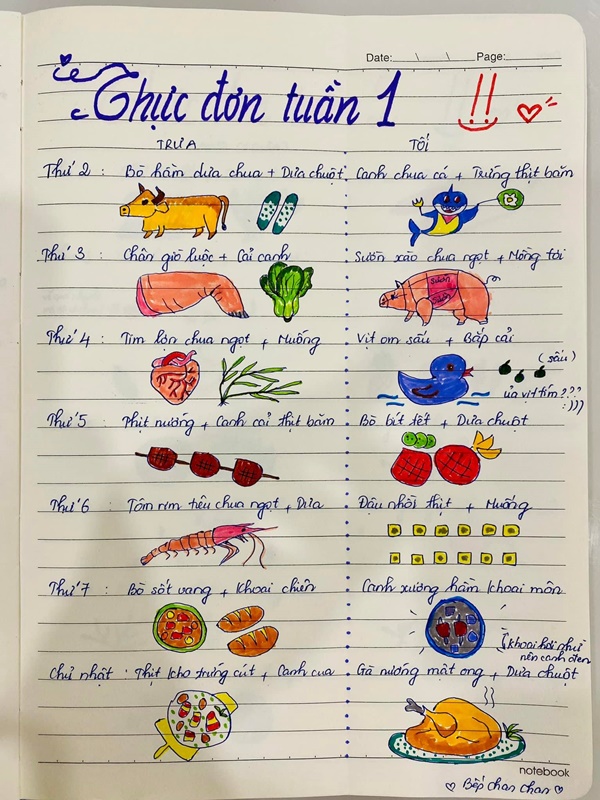 Date: \ \ Page:
Thực đơn tuần 1 !!
TRƯA TỐI
Thứ 2 : Bò hầm dưa chua + Dưa chuột Canh chua cá + Trứng thịt băm
Thứ 3 : Chân giò luộc + Cải canh Sườn xào chua ngọt + Mồng tơi
SƯỜN
SƯỜN
Thứ 4 : Tim lợn chua ngọt + Muống Vịt om sấu + Bắp cải
(sấu)
ủa vịt tím???
:)))
Thứ 5 : Thịt nướng + Canh cải thịt băm Bò bít tết + Dưa chuột
Thứ 6 : Tôm rim tiêu chua ngọt + Dưa Đậu nhồi thịt + Muống
Thứ 7 : Bò sốt vang + Khoai chiên Canh xương hầm khoai môn
khoai hơi như
nên canh đen
Chủ nhật : Thịt kho trứng cút + Canh cua Gà nướng mật ong + Dưa chuột
notebook
Bếp chan chan